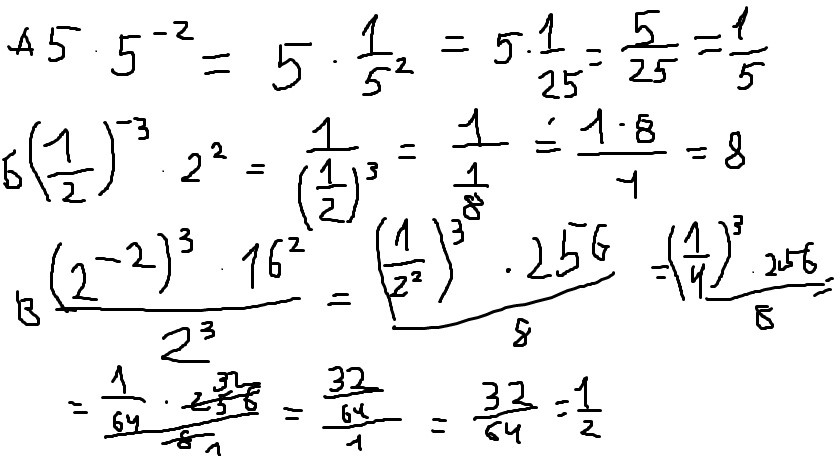 А 5 · 5^{-2} = 5 · \frac{1}{5^2} = 5 · \frac{1}{25} = \frac{5}{25} = \frac{1}{5}
Б \left(\frac{1}{2}\right)^{-3} · 2^2 = \frac{1}{\left(\frac{1}{2}\right)^3} = \frac{1}{\frac{1}{8}} = \frac{1 · 8}{1} = 8
В \frac{(2^{-2})^3 · 16^2}{2^3} = \frac{\left(\frac{1}{2^2}\right)^3 · 256}{8} = \frac{\left(\frac{1}{4}\right)^3 · 256}{8} =
= \frac{\frac{1}{64} · \cancel{256} 32}{\cancel{8} 1} = \frac{\frac{32}{64}}{1} = \frac{32}{64} = \frac{1}{2}